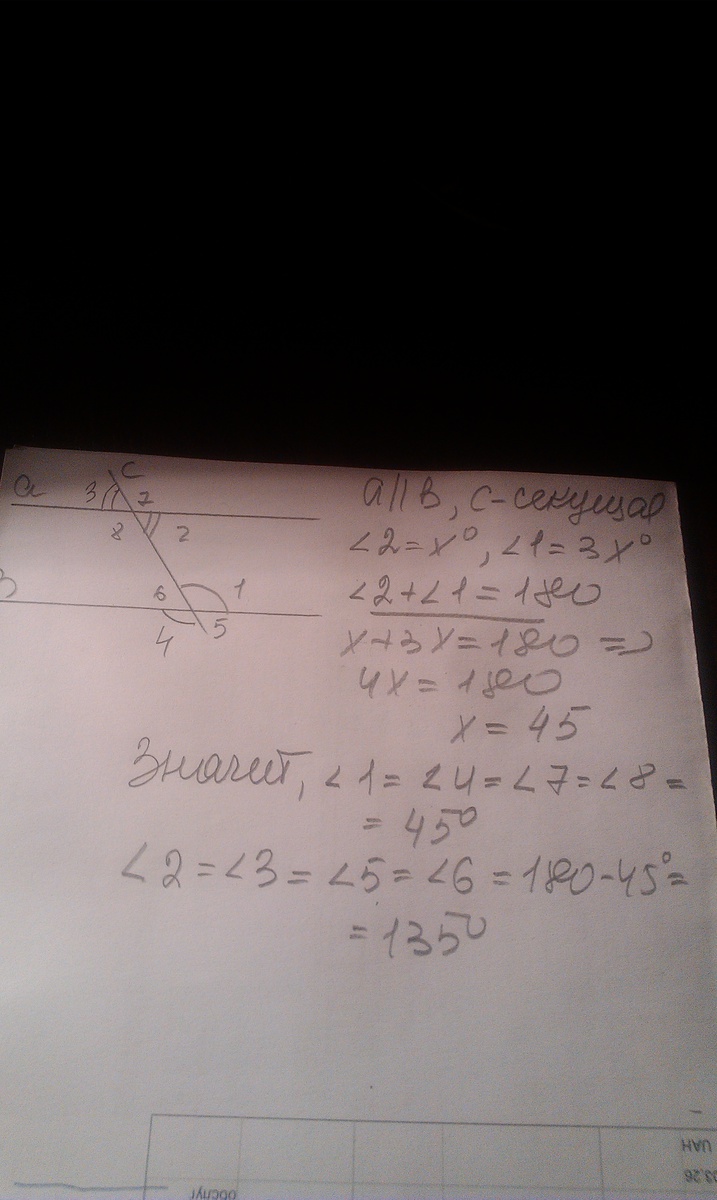 a
c
3
7
8
2
в
6
1
4
5
a||в, c-секущая
∠2=x°, ∠1=3x°
∠2+∠1=180
x+3x=180 =>
4x=180
x=45
Значит, ∠1=∠4=∠7=∠8=
=45°
∠2=∠3=∠5=∠6=180-45°=
=135°
UAH
обслуг